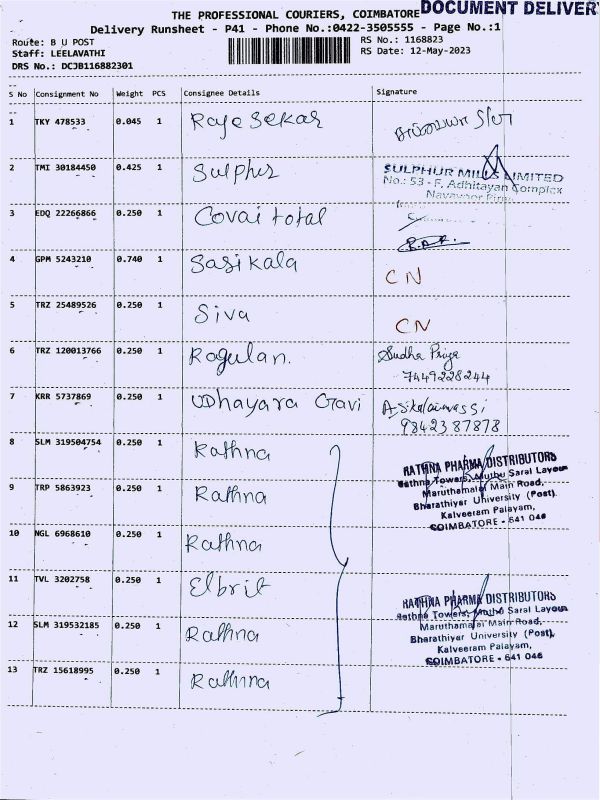 DOCUMENT DELIVERY
THE PROFESSIONAL COURIERS, COIMBATORE
Delivery Runsheet - P41 - Phone No.:0422-3505555 - Page No.:1
Route: B U POST
RS No.: 1168823
Staff: LEELAVATHI
RS Date: 12-May-2023
DRS No.: DCJB116882301
S No Consignment No Weight PCS Consignee Details Signature
1 TKY 478533 0.045 1 Raje sekar
2 TMI 30184450 0.425 1 Sulphur
SULPHUR MILLS LIMITED
No.: 53 - F, Adhitayan Complex
3 EDQ 22266866 0.250 1 Covai total
4 GPM 5243210 0.740 1 Sasikala CN
5 TRZ 25489526 0.250 1 Siva CN
6 TRZ 120013766 0.250 1 Ragulan. Sudha Priya
7449228244
7 KRR 5737869 0.250 1 Udhayara Gavi
9842387878
8 SLM 319504754 0.250 1 Rathna
RATHNA PHARMA DISTRIBUTORS
Rathna Towers, Muthu Saral Layout
9 TRP 5863923 0.250 1 Rathna
Maruthamalai Main Road,
Bharathiyar University (Post),
Kalveeram Palayam,
COIMBATORE - 641 046
10 NGL 6968610 0.250 1 Rathna
11 TVL 3202758 0.250 1 Elbrit
RATHNA PHARMA DISTRIBUTORS
Rathna Towers, Muthu Saral Layout
12 SLM 319532185 0.250 1 Rathna
Maruthamalai Main Road,
Bharathiyar University (Post),
Kalveeram Palayam,
COIMBATORE - 641 046
13 TRZ 15618995 0.250 1 Rathna